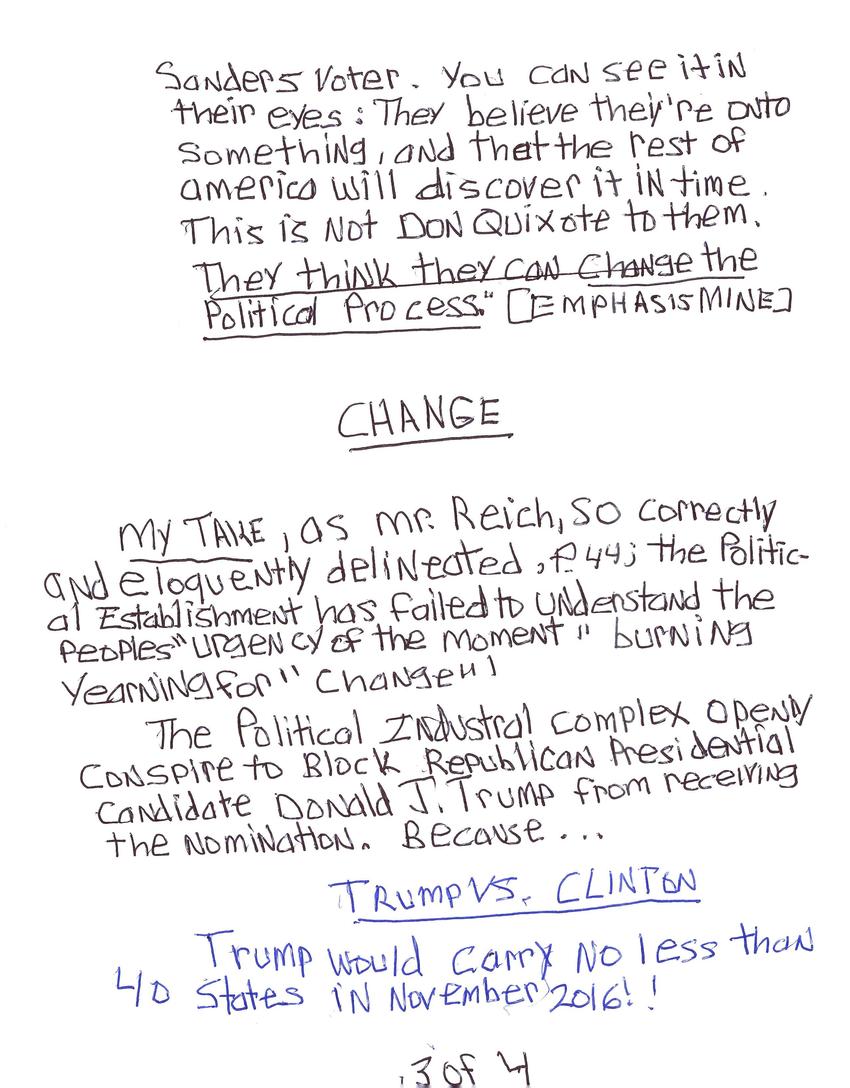 Sanders Voter. You can see it in
their eyes: They believe they're onto
something, and that the rest of
america will discover it in time.
This is Not DON Quixote to them.
They think they can Change the
Political Process." [EMPHASIS MINE]
CHANGE
My TAKE, as mr. Reich, so correctly
and eloquently delineated, P 44; the Politic-
al Establishment has failed to understand the
Peoples "urgency of the moment" burning
Yearning for "Change"!
The Political Industral Complex openly
Conspire to Block Republican Presidential
Candidate Donald J. Trump from receiving
the nomination. Because...
TRUMP VS. CLINTON
Trump would carry No less than
40 States in November 2016!!
3 of 4